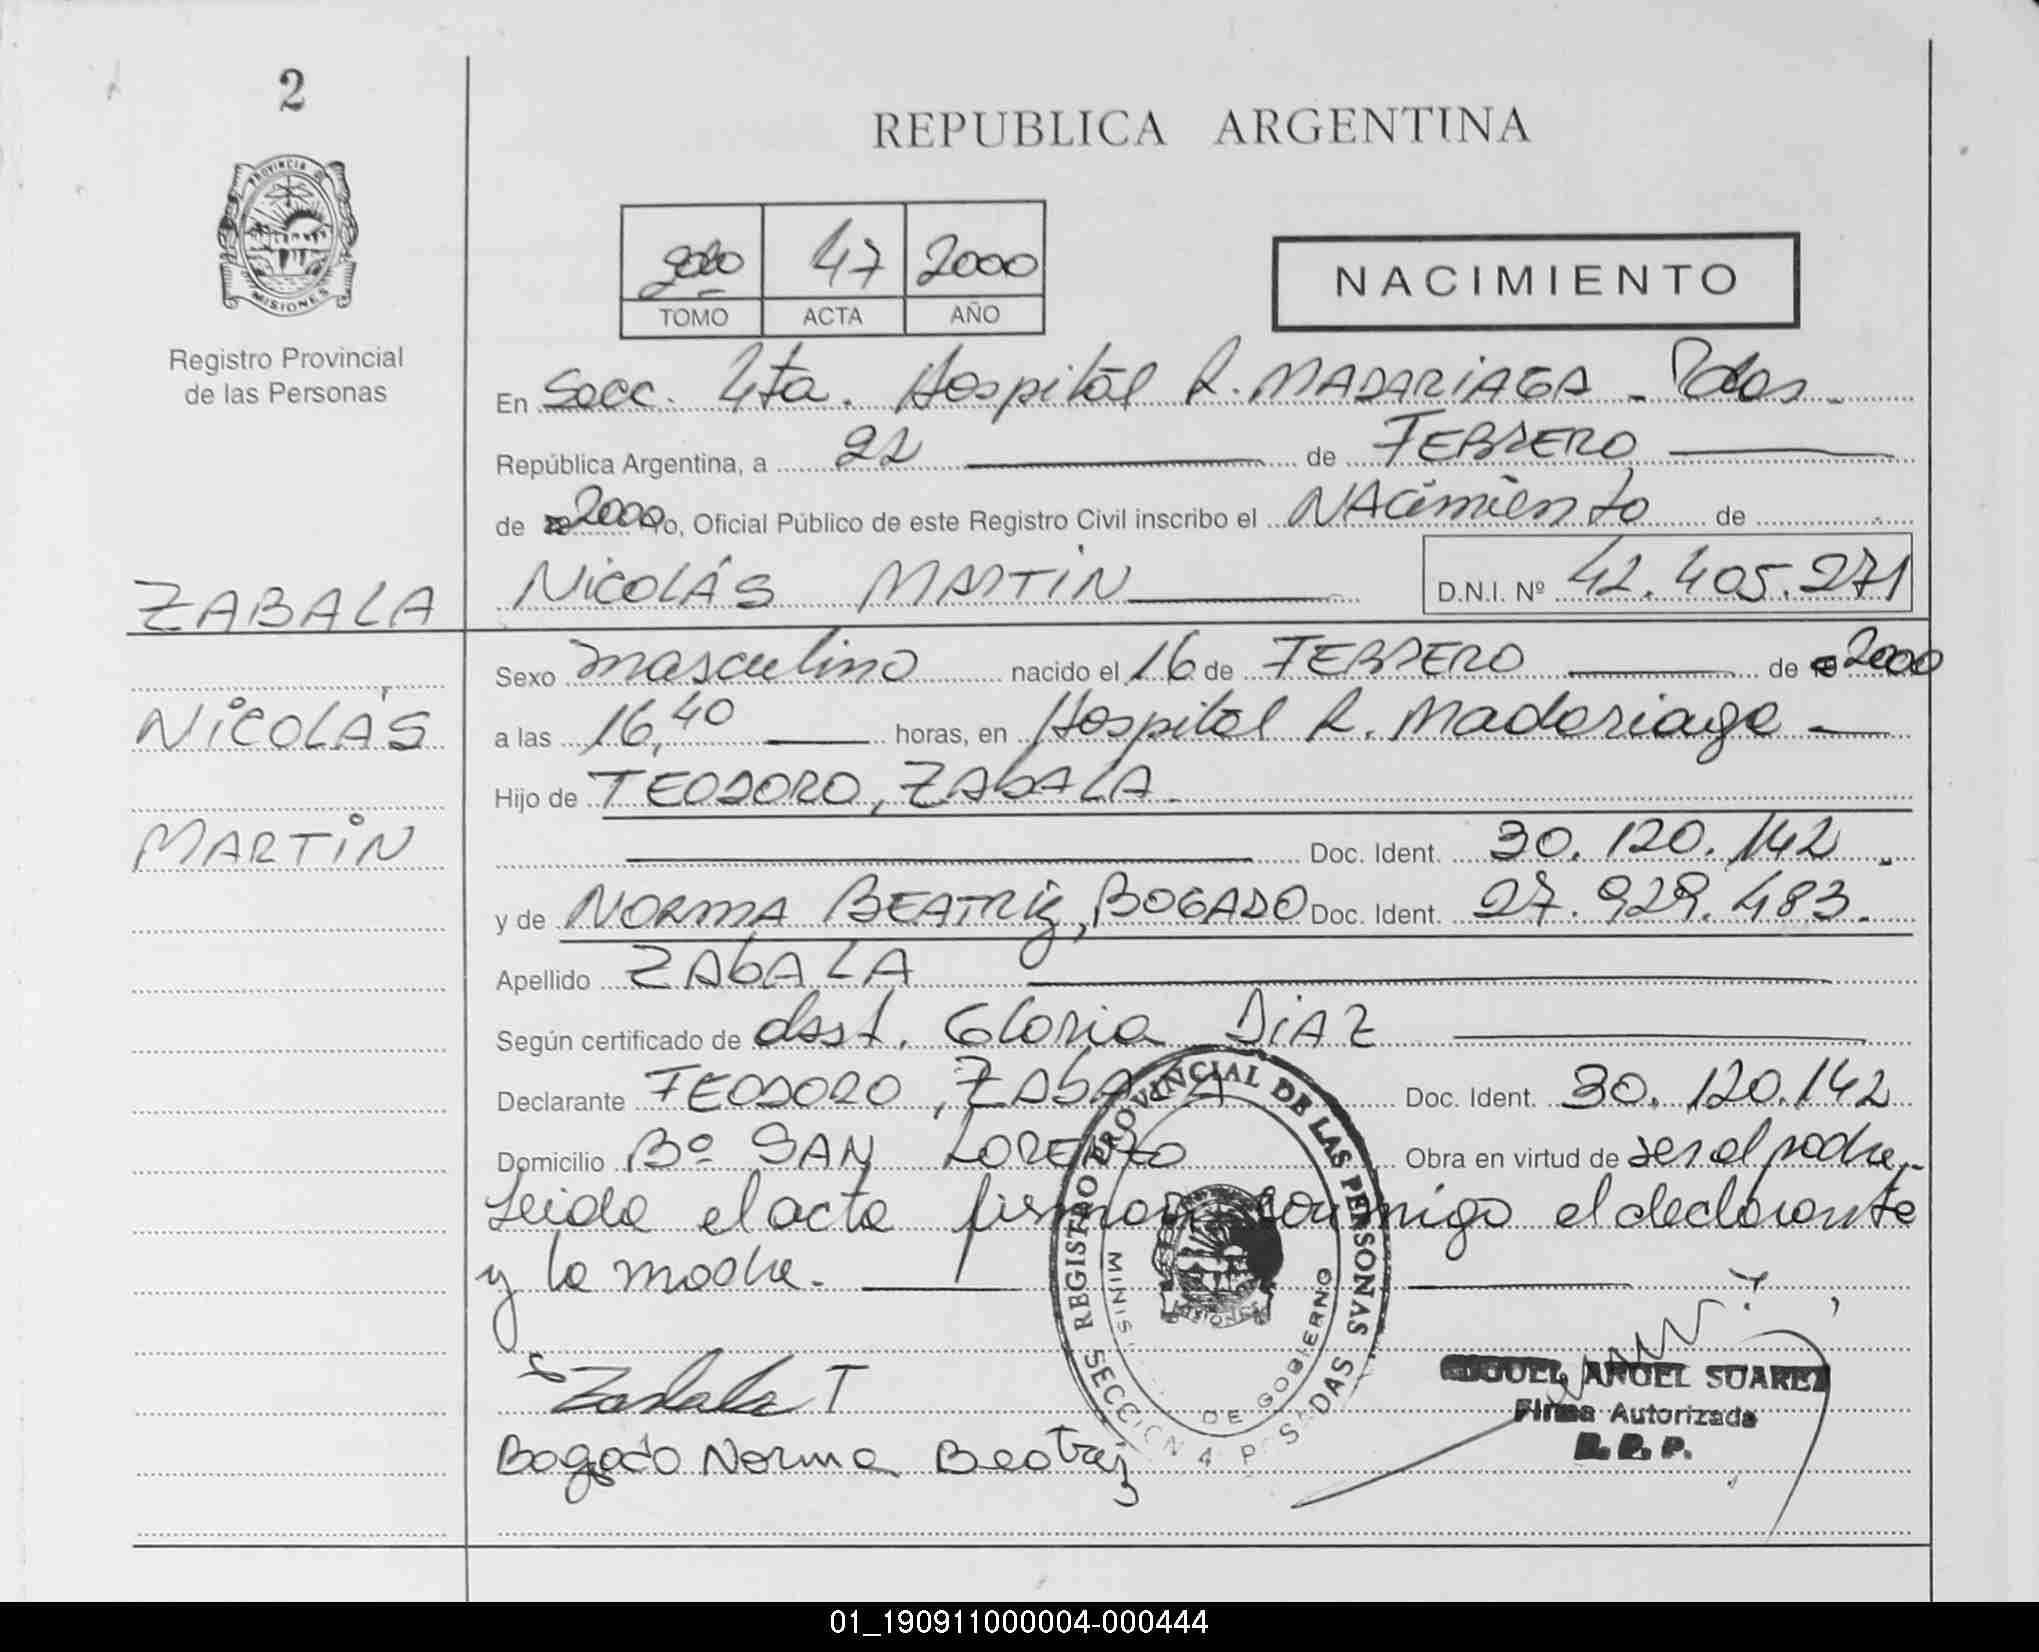 2
PROVINCIA DE
MISIONES
Registro Provincial
de las Personas
REPUBLICA ARGENTINA
2do 47 2000
TOMO ACTA AÑO
NACIMIENTO
En Secc. 4ta. Hospital R. MADARIAGA - Pdas.
República Argentina, a 22 de FEBRERO
de 2000 yo, Oficial Público de este Registro Civil inscribo el NAcimiento de
ZABALA NicoLÁS MARTíN D.N.I. Nº 42.405.271
Sexo masculino nacido el 16 de FEBRERO de 2000
NicoLÁS a las 16,40 horas, en Hospital R. Madariaga
Hijo de TEODORO, ZAbALA.
MARTiN Doc. Ident. 30.120.142.
y de NORMA BEATRiz, BOGADO Doc. Ident. 27.929.483.
Apellido ZAbALA
Según certificado de obst. Gloria DiAZ
Declarante TEODORO, ZAbALA Doc. Ident. 30.120.142
Domicilio Bº SAN LORENZO Obra en virtud de ser el padre.
Leida el acta firman conmigo el declarante
y la madre.
REGISTRO PROVINCIAL DE LAS PERSONAS
SECCION 4 POSADAS
MINIS DE GOBIERNO
MISIONES
Zabala T
MIGUEL ANGEL SUAREZ
Firma Autorizada
R. P. P.
Bogado Norma Beatriz
01_190911000004-000444